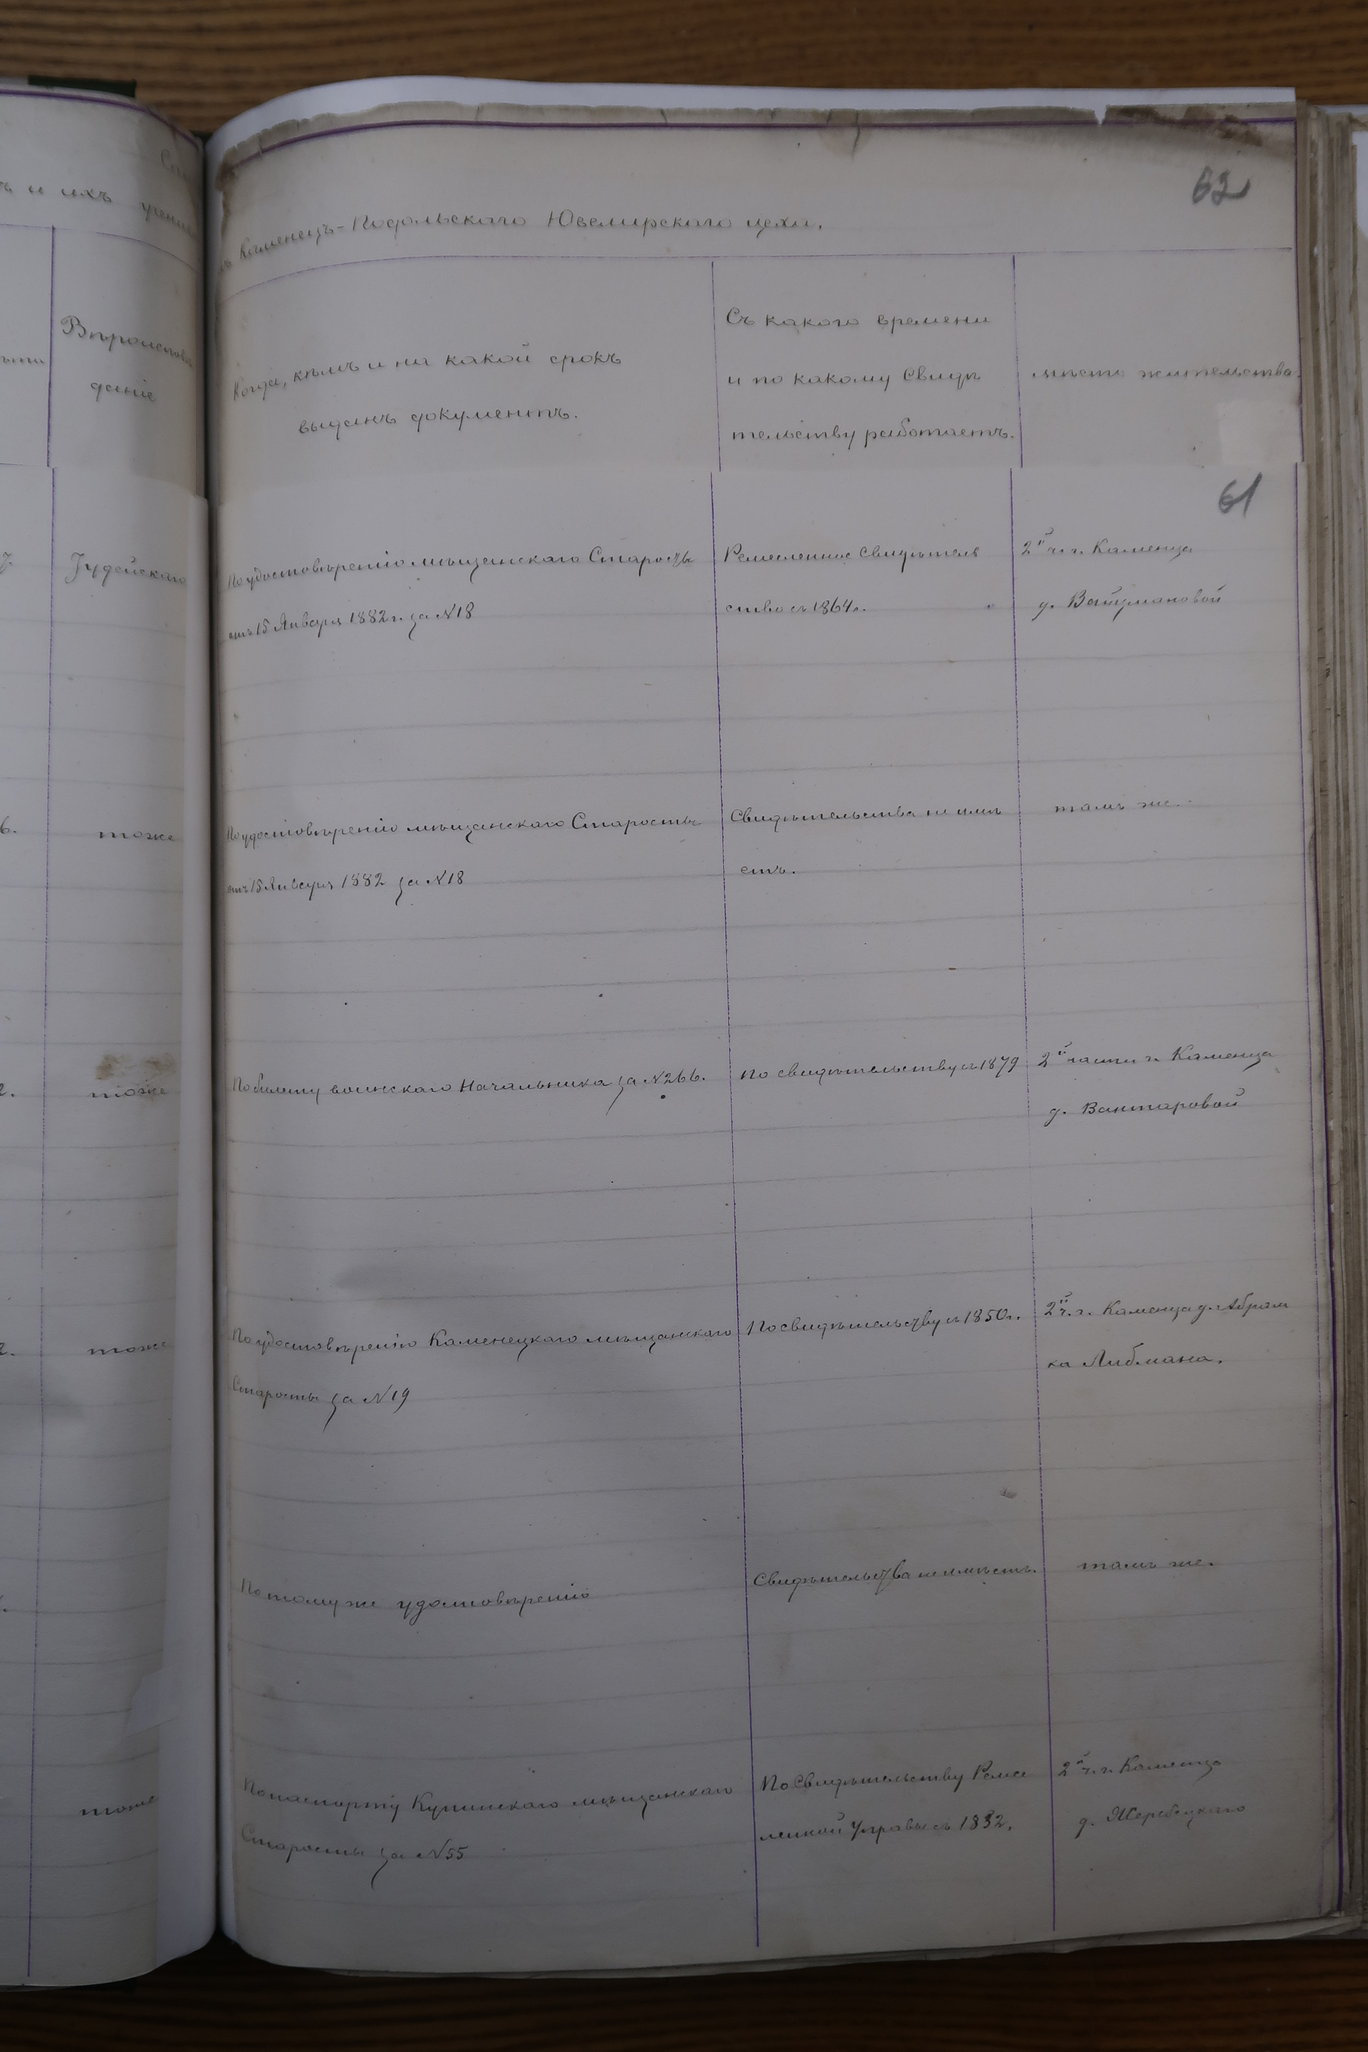 62
ъ и ихъ
Каменецъ-Подольскаго Ювелирскаго цеха.
Вѣроисповѣ
даніе
Когда, кѣмъ и на какой срокъ
выданъ документъ.
Съ какого времени
и по какому Свидѣ
тельству работаетъ.
мѣсто жительства
61
Іудейскаго
По удостовѣренію мѣщанскаго Старосты
отъ 15 Января 1882 г. за №18
Ремесленное Свидѣтель
ство съ 1864 г.
2й ч. г. Каменца
д. Вайцмановой
6.
тоже
По удостовѣренію мѣщанскаго Старосты
отъ 15 Января 1882 за №18
Свидѣтельства не имѣ
етъ.
тамъ же.
2.
тоже
По билету воинскаго Начальника за №266.
по свидѣтельству съ 1879
2й части г. Каменца
д. Вантаровой
2.
тоже
По удостовѣренію Каменецкаго мѣщанскаго
Старосты за №19
По свидѣтельству съ 1850 г.
2й ч. г. Каменца д. Абрам
ка Либмана.
По тому же удостовѣренію
Свидѣтельства не имѣетъ.
тамъ же.
тоже
По паспорту Купинскаго мѣщанскаго
Старосты за №55
По Свидѣтельству Ремес
ленной Управы съ 1832.
2й ч. г. Каменца
д. Жеребецкаго